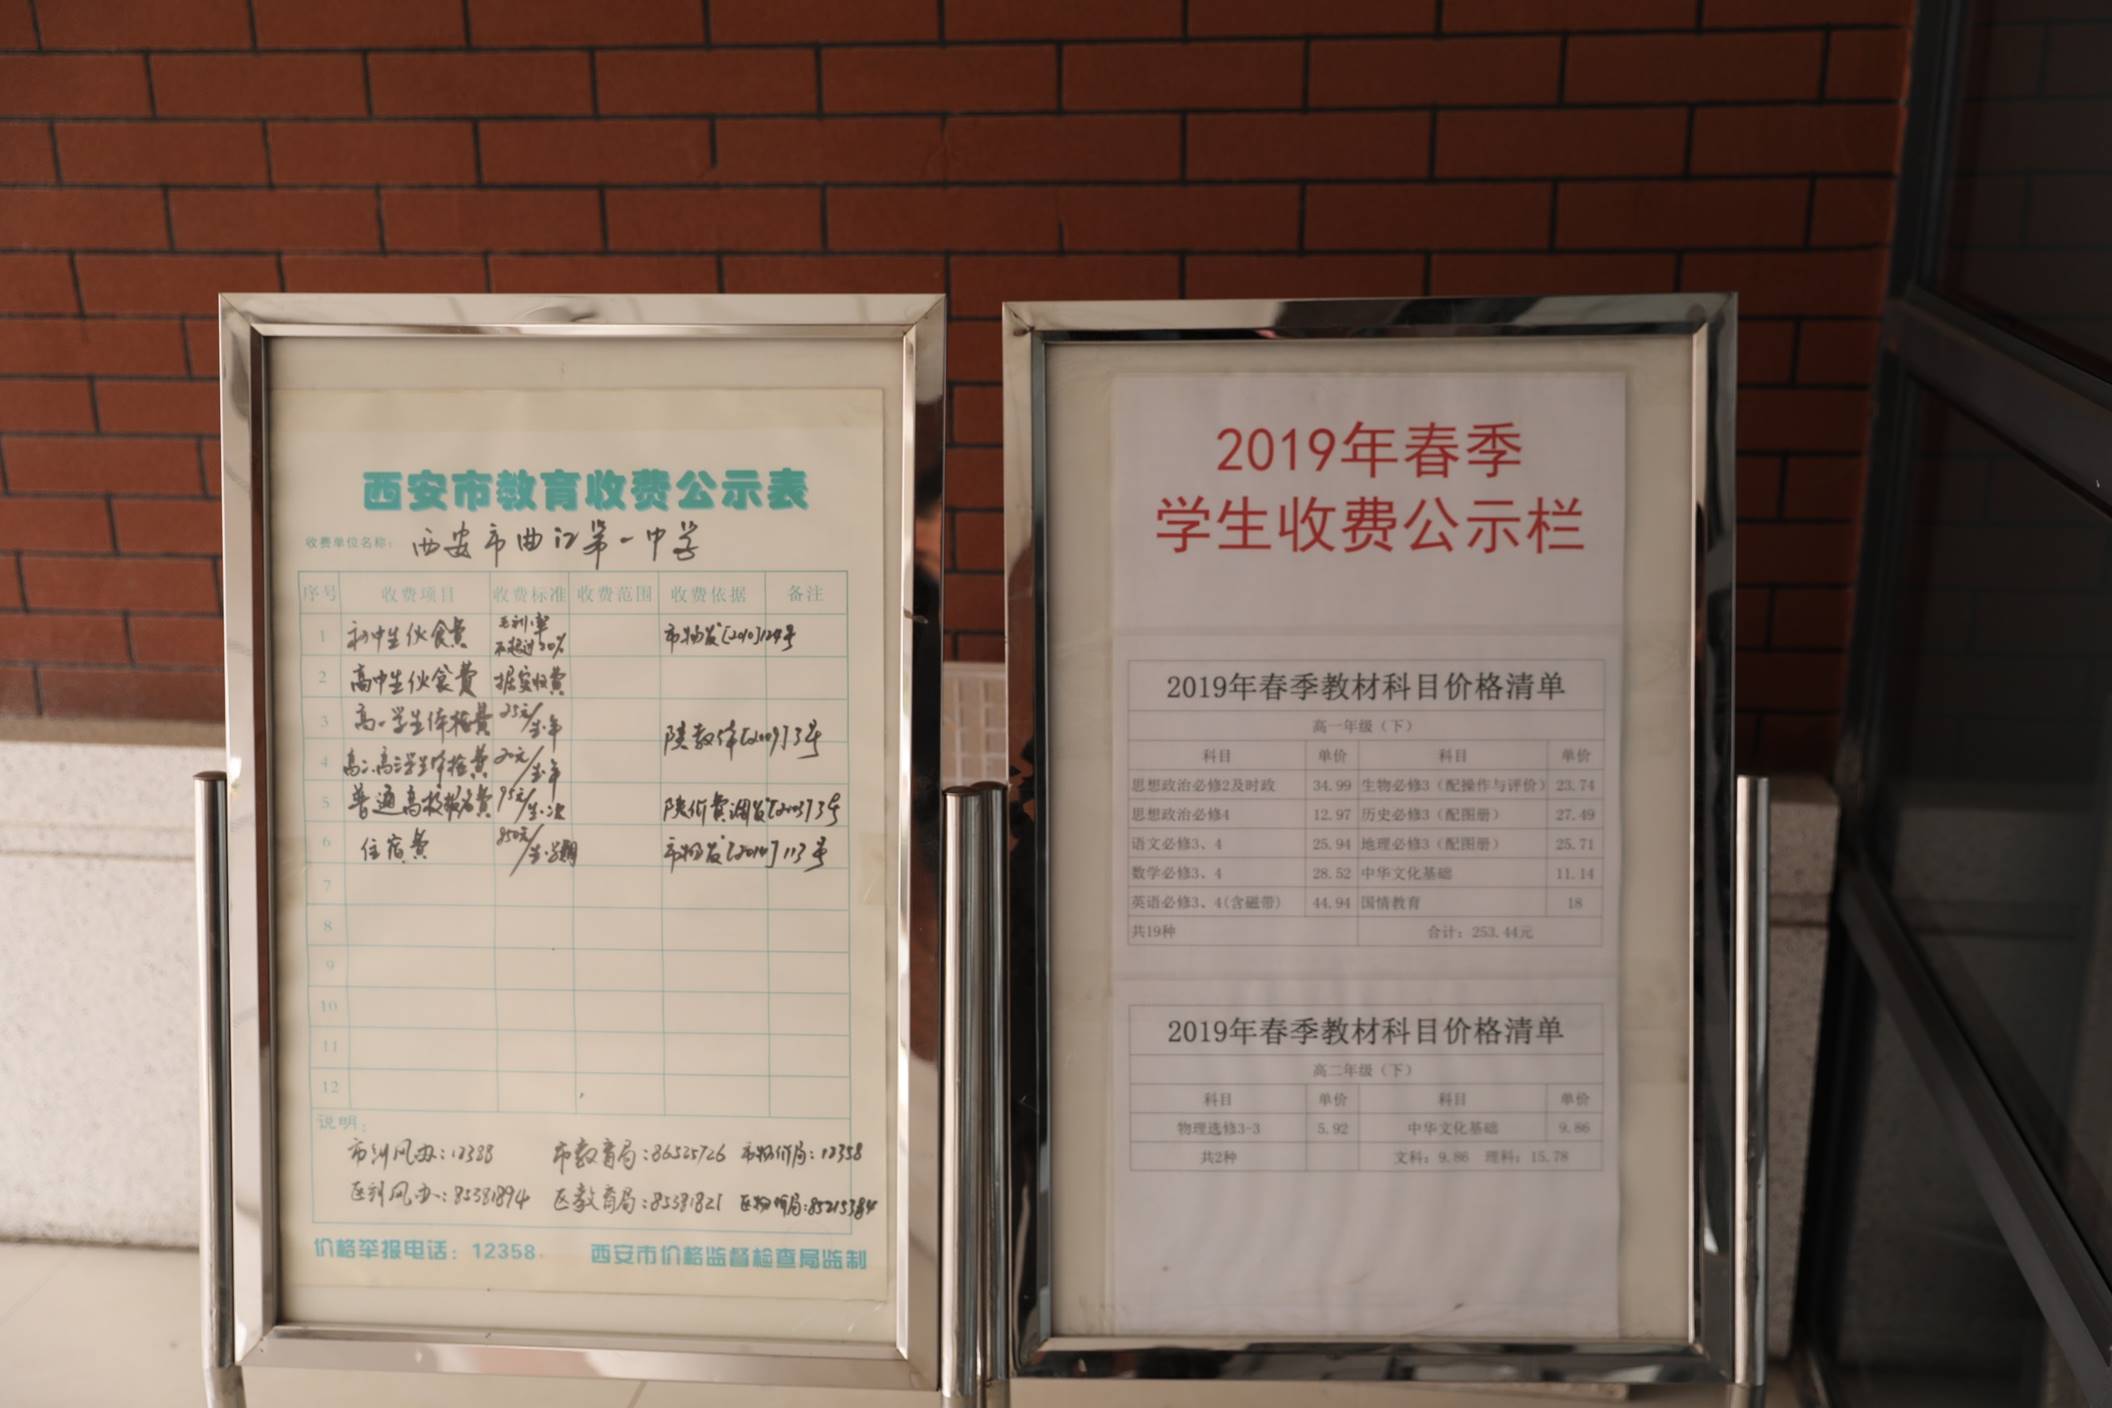 西安市教育收费公示表
收费单位名称: 西安市曲江第一中学
序号 收费项目 收费标准 收费范围 收费依据 备注
1 初中生伙食费 毛利率不超过30% 市物发[2010]124号
2 高中生伙食费 据实收费
3 高一学生体检费 25元/生·年 陕教体[2009]3号
4 高二、高三学生体检费 20元/生·年
5 普通高校报名费 95元/生·次 陕价费调发[2003]3号
6 住宿费 350元/生·学期 市物发[2014]113号
7
8
9
10
11
12
说明:
市纠风办:12388 市教育局:86525726 市物价局:12358
区纠风办:85381894 区教育局:85381821 区物价局:85215384
价格举报电话: 12358 西安市价格监督检查局监制
2019年春季
学生收费公示栏
2019年春季教材科目价格清单
高一年级（下）
科目 单价 科目 单价
思想政治必修2及时政 34.99 生物必修3（配操作与评价） 23.74
思想政治必修4 12.97 历史必修3（配图册） 27.49
语文必修3、4 25.94 地理必修3（配图册） 25.71
数学必修3、4 28.52 中华文化基础 11.14
英语必修3、4(含磁带) 44.94 国情教育 18
共19种 合计: 253.44元
2019年春季教材科目价格清单
高二年级（下）
科目 单价 科目 单价
物理选修3-3 5.92 中华文化基础 9.86
共2种 文科: 9.86 理科: 15.78